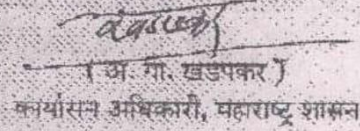 ( अ. गो. खडपकर )
कार्यासन अधिकारी, महाराष्ट्र शासन